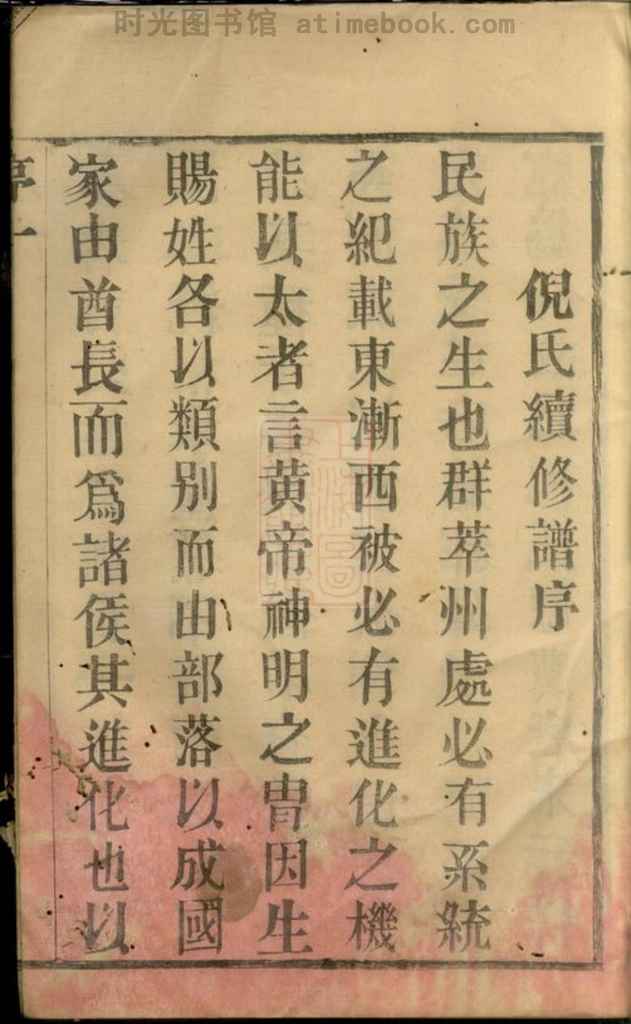 时光图书馆 atimebook.com
倪氏續修譜序
民族之生也群萃州處必有系統
之紀載東漸西被必有進化之機
能以太者言黄帝神明之冑因生
賜姓各以類别而由部落以成國
家由酋長而爲諸侯其進化也以
序一